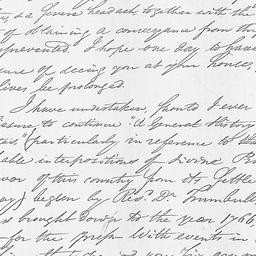 , & a severe headach, together with the
of obtaining a conveyance from th
prevented. I hope one day to have
ure of seeing you at your house,
lives be prolonged.
I have undertaken, should I ever
esure to continue "A General History
tes (particularly in reference to the
able interpositions of divine Pro
over of this country from its Settle
ay) begun by Revd. Dr. Trumbull,
s brought down to the year 1766
for the press with events in